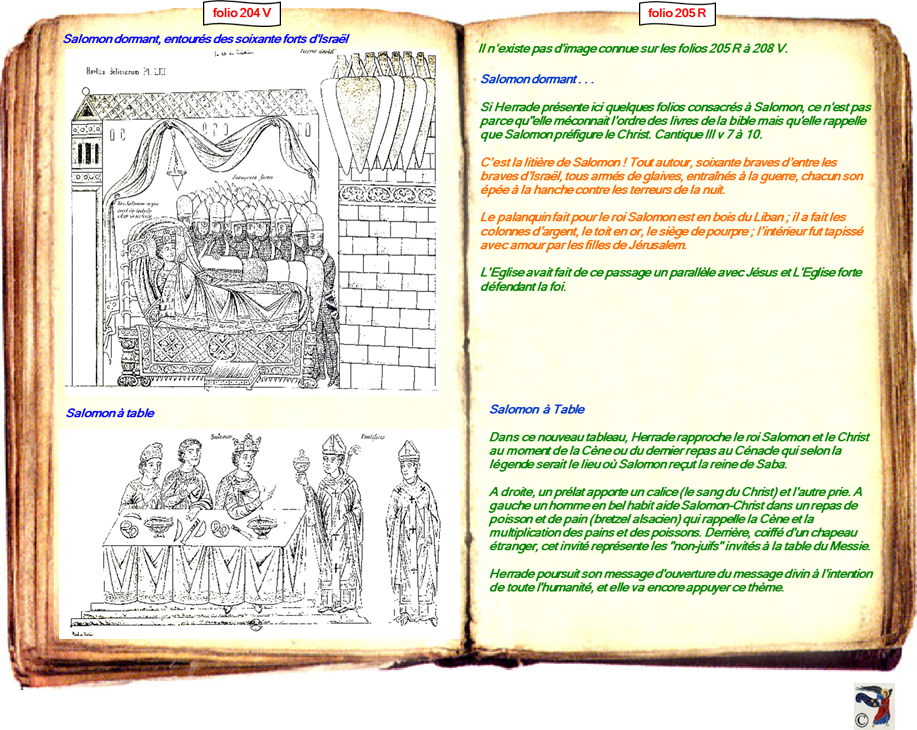 folio 204 V
folio 205 R
Salomon dormant, entourés des soixante forts d'Israël
Hortus deliciarum Pl. LIII
Salomon à table
Salomon
Pontifices
Il n'existe pas d'image connue sur les folios 205 R à 208 V.
Salomon dormant . . .
Si Herrade présente ici quelques folios consacrés à Salomon, ce n'est pas
parce qu''elle méconnait l'ordre des livres de la bible mais qu'elle rappelle
que Salomon préfigure le Christ. Cantique III v 7 à 10.
C'est la litière de Salomon ! Tout autour, soixante braves d'entre les
braves d'Israël, tous armés de glaives, entraînés à la guerre, chacun son
épée à la hanche contre les terreurs de la nuit.
Le palanquin fait pour le roi Salomon est en bois du Liban ; il a fait les
colonnes d'argent, le toit en or, le siège de pourpre ; l'intérieur fut tapissé
avec amour par les filles de Jérusalem.
L'Eglise avait fait de ce passage un parallèle avec Jésus et L'Eglise forte
défendant la foi.
Salomon à Table
Dans ce nouveau tableau, Herrade rapproche le roi Salomon et le Christ
au moment de la Cène ou du dernier repas au Cénacle qui selon la
légende serait le lieu où Salomon reçut la reine de Saba.
A droite, un prélat apporte un calice (le sang du Christ) et l'autre prie. A
gauche un homme en bel habit aide Salomon-Christ dans un repas de
poisson et de pain (bretzel alsacien) qui rappelle la Cène et la
multiplication des pains et des poissons. Derrière, coiffé d'un chapeau
étranger, cet invité représente les "non-juifs" invités à la table du Messie.
Herrade poursuit son message d'ouverture du message divin à l'intention
de toute l'humanité, et elle va encore appuyer ce thème.
©